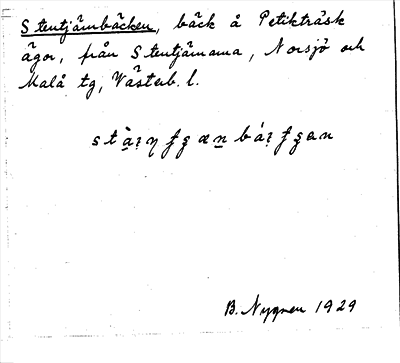 Stentjärnbäcken, bäck å Petikträsk
ägor, från Stentjärnarna, Norsjö och
Malå tg, Västerb. l.
B. Nygren 1929